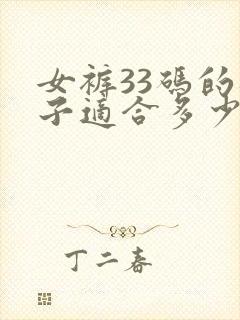 女裤33碼的
子適合多少
丁二春